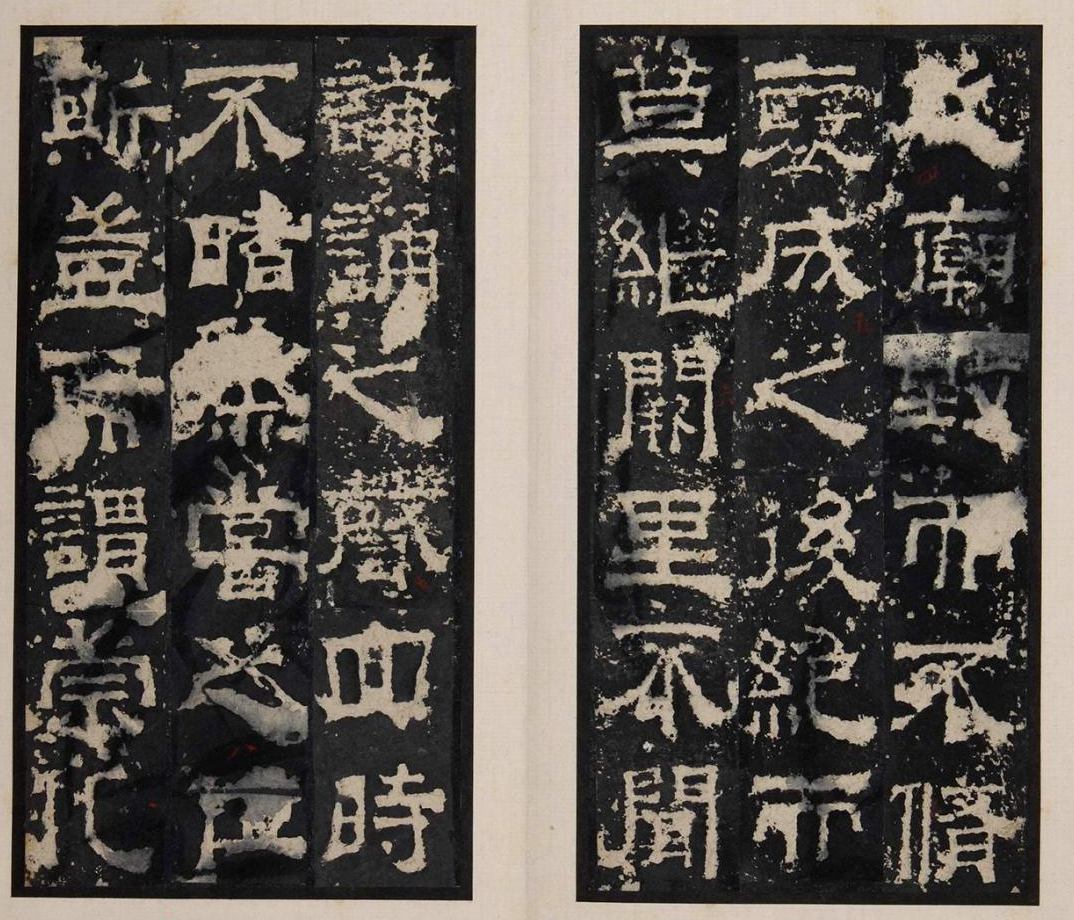 之廟毀而不脩
褒成之後絕而
莫繼闕里不聞
講誦之聲四時
不睹烝嘗之位
斯豈所謂崇化